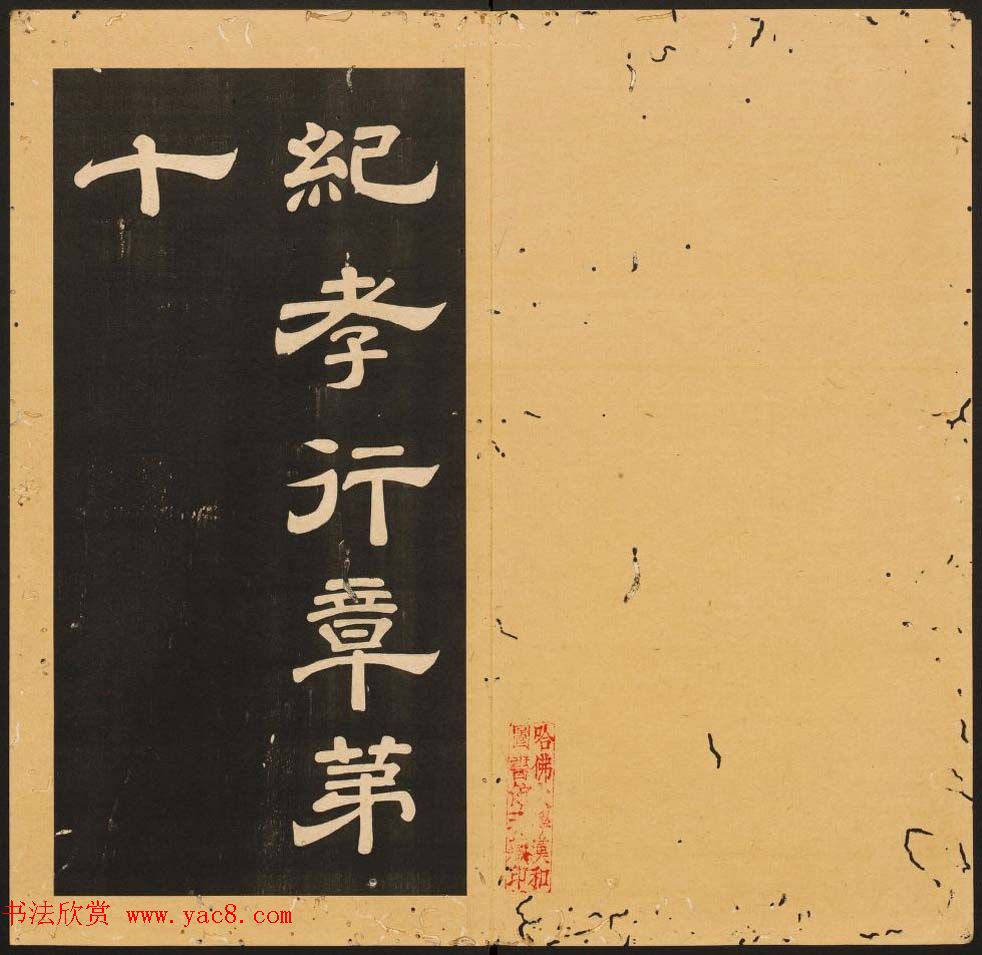 紀孝行章苐
十
哈佛大學漢和
圖書館珍藏印
书法欣赏 www.yac8.com